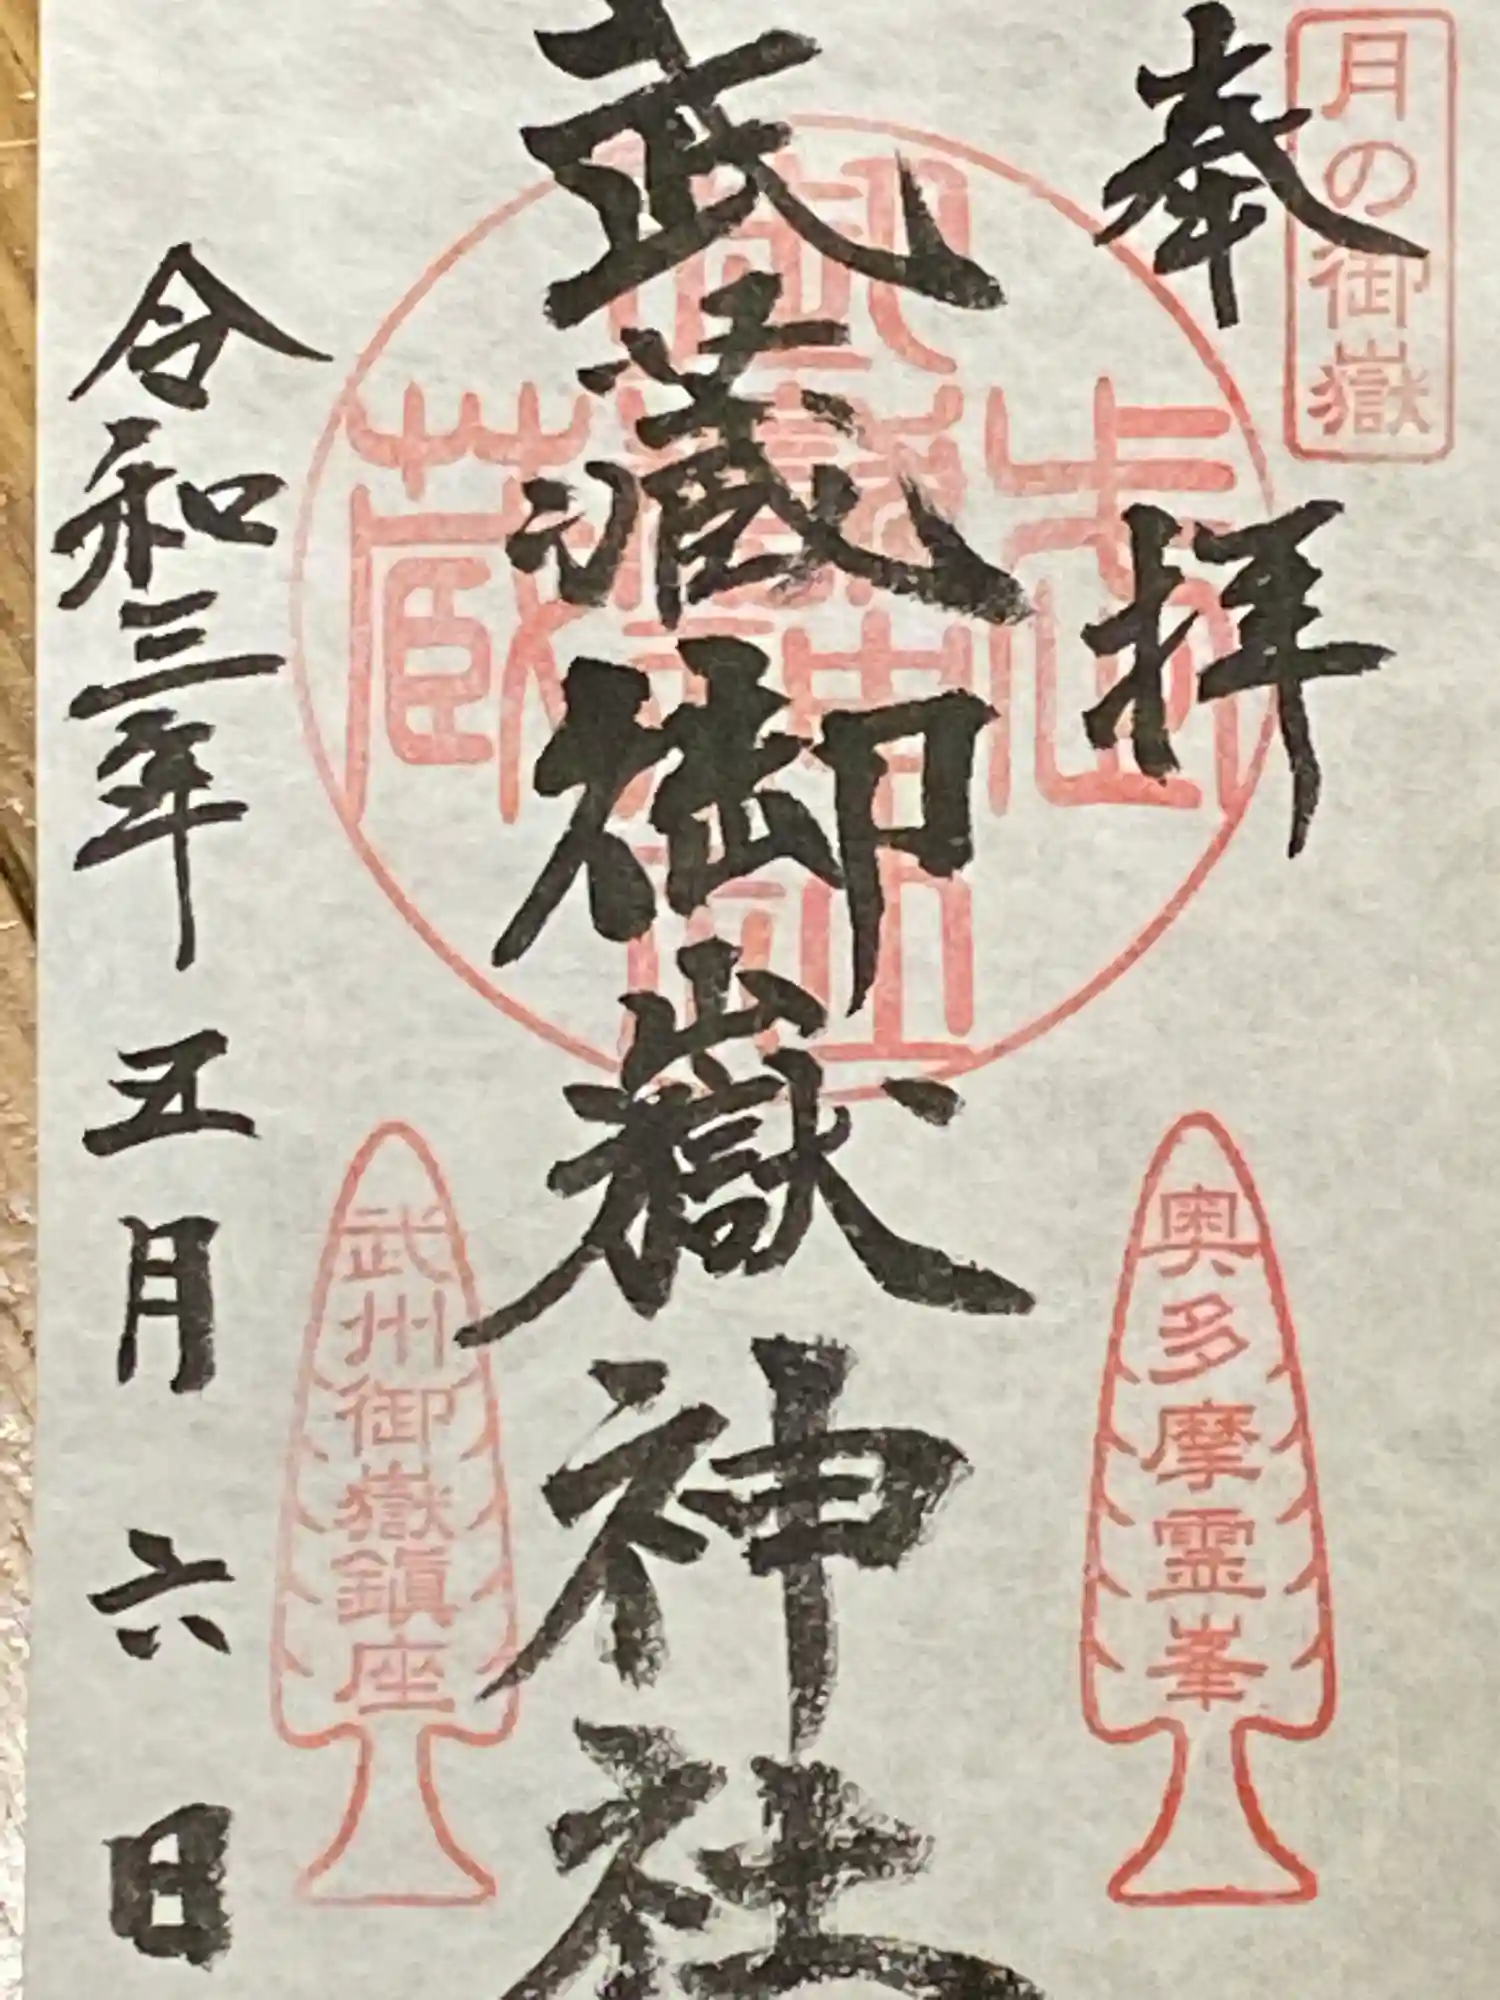 月の御嶽
奉拝
奥多摩霊峯
武蔵御嶽神社
武蔵御嶽神社
武州御嶽鎮座
令和三年五月六日